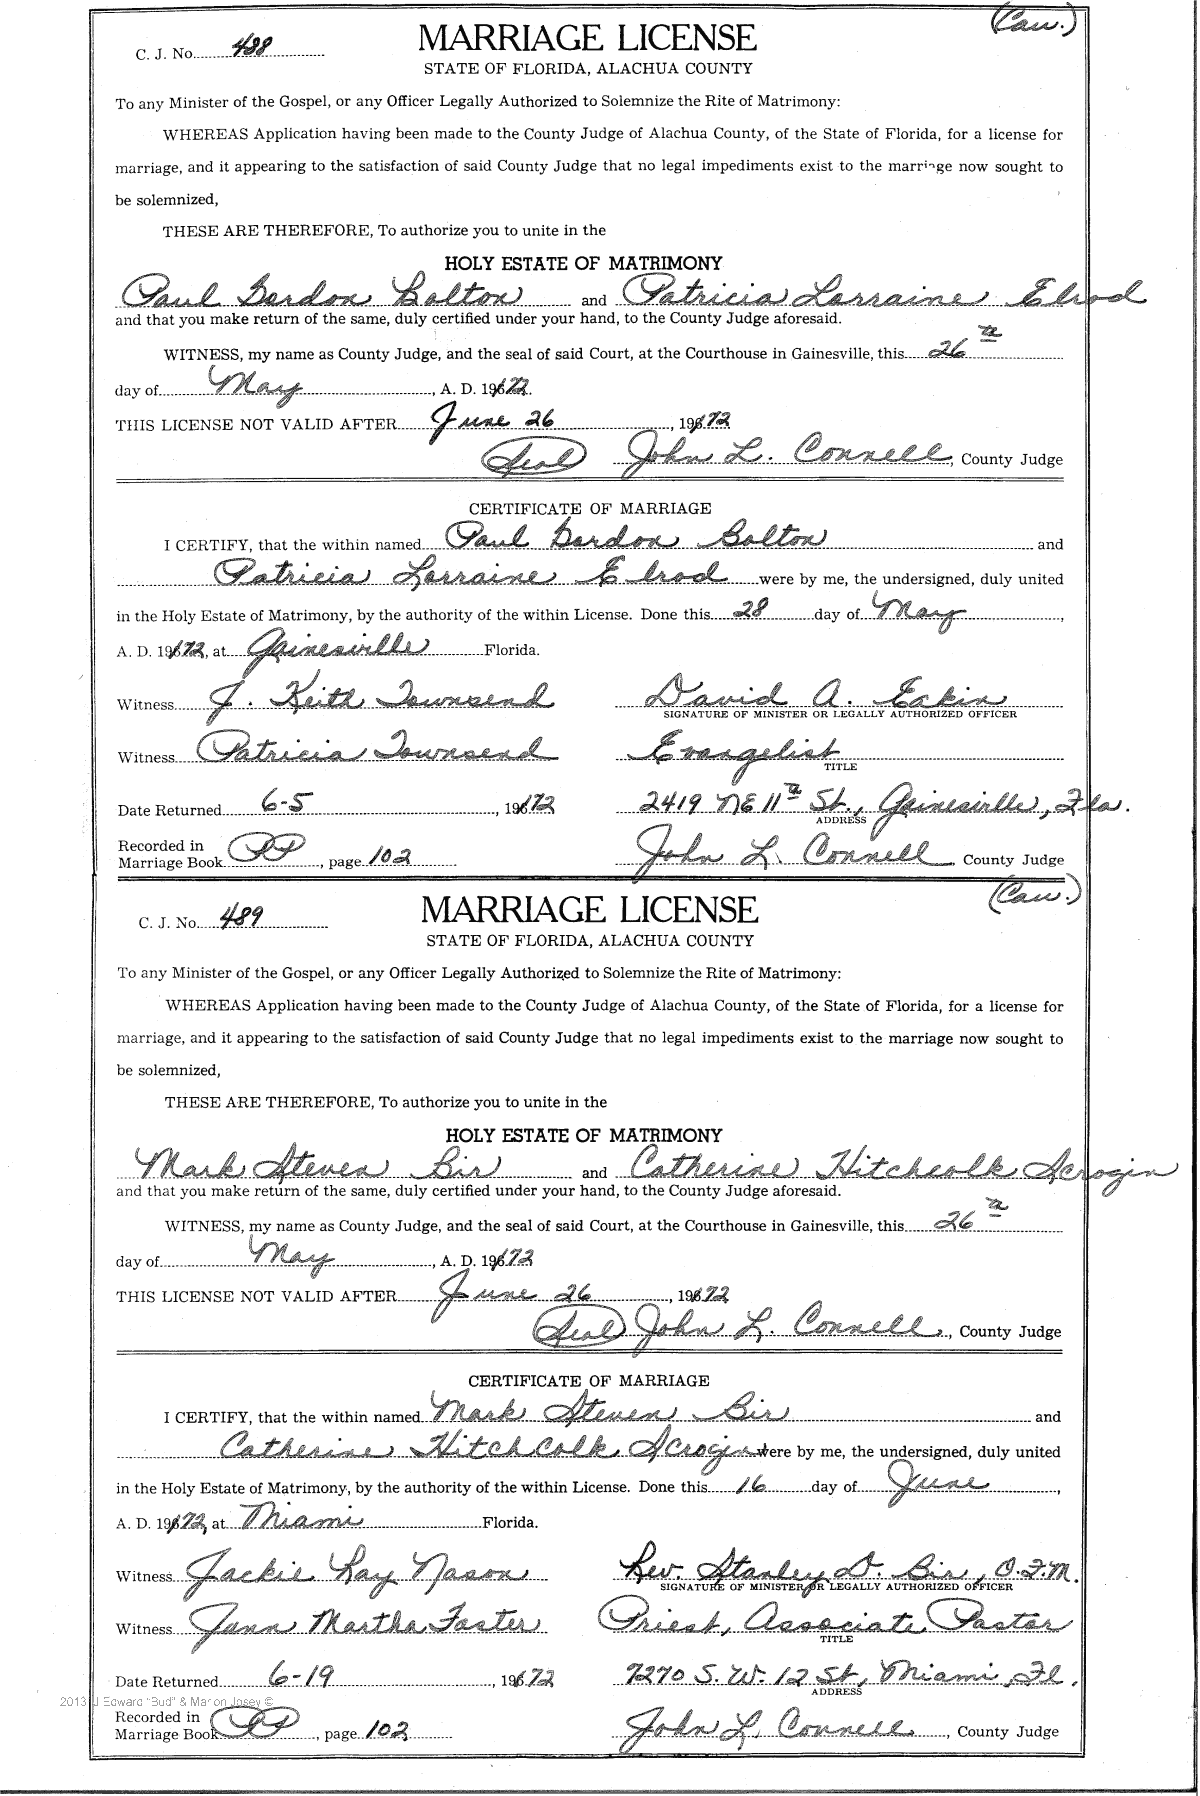 (Cau.)
C. J. No. 488
MARRIAGE LICENSE
STATE OF FLORIDA, ALACHUA COUNTY
To any Minister of the Gospel, or any Officer Legally Authorized to Solemnize the Rite of Matrimony:
WHEREAS Application having been made to the County Judge of Alachua County, of the State of Florida, for a license for
marriage, and it appearing to the satisfaction of said County Judge that no legal impediments exist to the marriage now sought to
be solemnized,
THESE ARE THEREFORE, To authorize you to unite in the
HOLY ESTATE OF MATRIMONY
Paul Gordon Bolton and Patricia Lorraine Elrod
and that you make return of the same, duly certified under your hand, to the County Judge aforesaid.
WITNESS, my name as County Judge, and the seal of said Court, at the Courthouse in Gainesville, this 26th
day of May, A. D. 1972.
THIS LICENSE NOT VALID AFTER June 26, 1972
(Seal) John L. Connell, County Judge
CERTIFICATE OF MARRIAGE
I CERTIFY, that the within named Paul Gordon Bolton and
Patricia Lorraine Elrod were by me, the undersigned, duly united
in the Holy Estate of Matrimony, by the authority of the within License. Done this 28 day of May,
A. D. 1972, at Gainesville Florida.
Witness J. Keith Townsend David A. Eakin
SIGNATURE OF MINISTER OR LEGALLY AUTHORIZED OFFICER
Witness Patricia Townsend Evangelist
TITLE
Date Returned 6-5, 1972 2419 NE 11th St., Gainesville, Fla.
ADDRESS
Recorded in
Marriage Book PP, page 102 John L. Connell, County Judge
(Cau.)
C. J. No. 489
MARRIAGE LICENSE
STATE OF FLORIDA, ALACHUA COUNTY
To any Minister of the Gospel, or any Officer Legally Authorized to Solemnize the Rite of Matrimony:
WHEREAS Application having been made to the County Judge of Alachua County, of the State of Florida, for a license for
marriage, and it appearing to the satisfaction of said County Judge that no legal impediments exist to the marriage now sought to
be solemnized,
THESE ARE THEREFORE, To authorize you to unite in the
HOLY ESTATE OF MATRIMONY
Mark Steven Bir and Catherine Hitchcolk Scrogin
and that you make return of the same, duly certified under your hand, to the County Judge aforesaid.
WITNESS, my name as County Judge, and the seal of said Court, at the Courthouse in Gainesville, this 26th
day of May, A. D. 1972
THIS LICENSE NOT VALID AFTER June 26, 1972
(Seal) John L. Connell, County Judge
CERTIFICATE OF MARRIAGE
I CERTIFY, that the within named Mark Steven Bir and
Catherine Hitchcolk Scrogin were by me, the undersigned, duly united
in the Holy Estate of Matrimony, by the authority of the within License. Done this 16 day of June,
A. D. 1972, at Miami Florida.
Witness Jackie Ray Nason Rev. Stanley D. Bir, O.F.M.
SIGNATURE OF MINISTER OR LEGALLY AUTHORIZED OFFICER
Witness Jann Martha Foster Priest, Associate Pastor
TITLE
Date Returned 6-19, 1972 7270 S. W. 12 St, Miami, Fl.
ADDRESS
2013 J Edward "Bud" & Marion Josey ©
Recorded in
Marriage Book PP, page 102 John L. Connell, County Judge